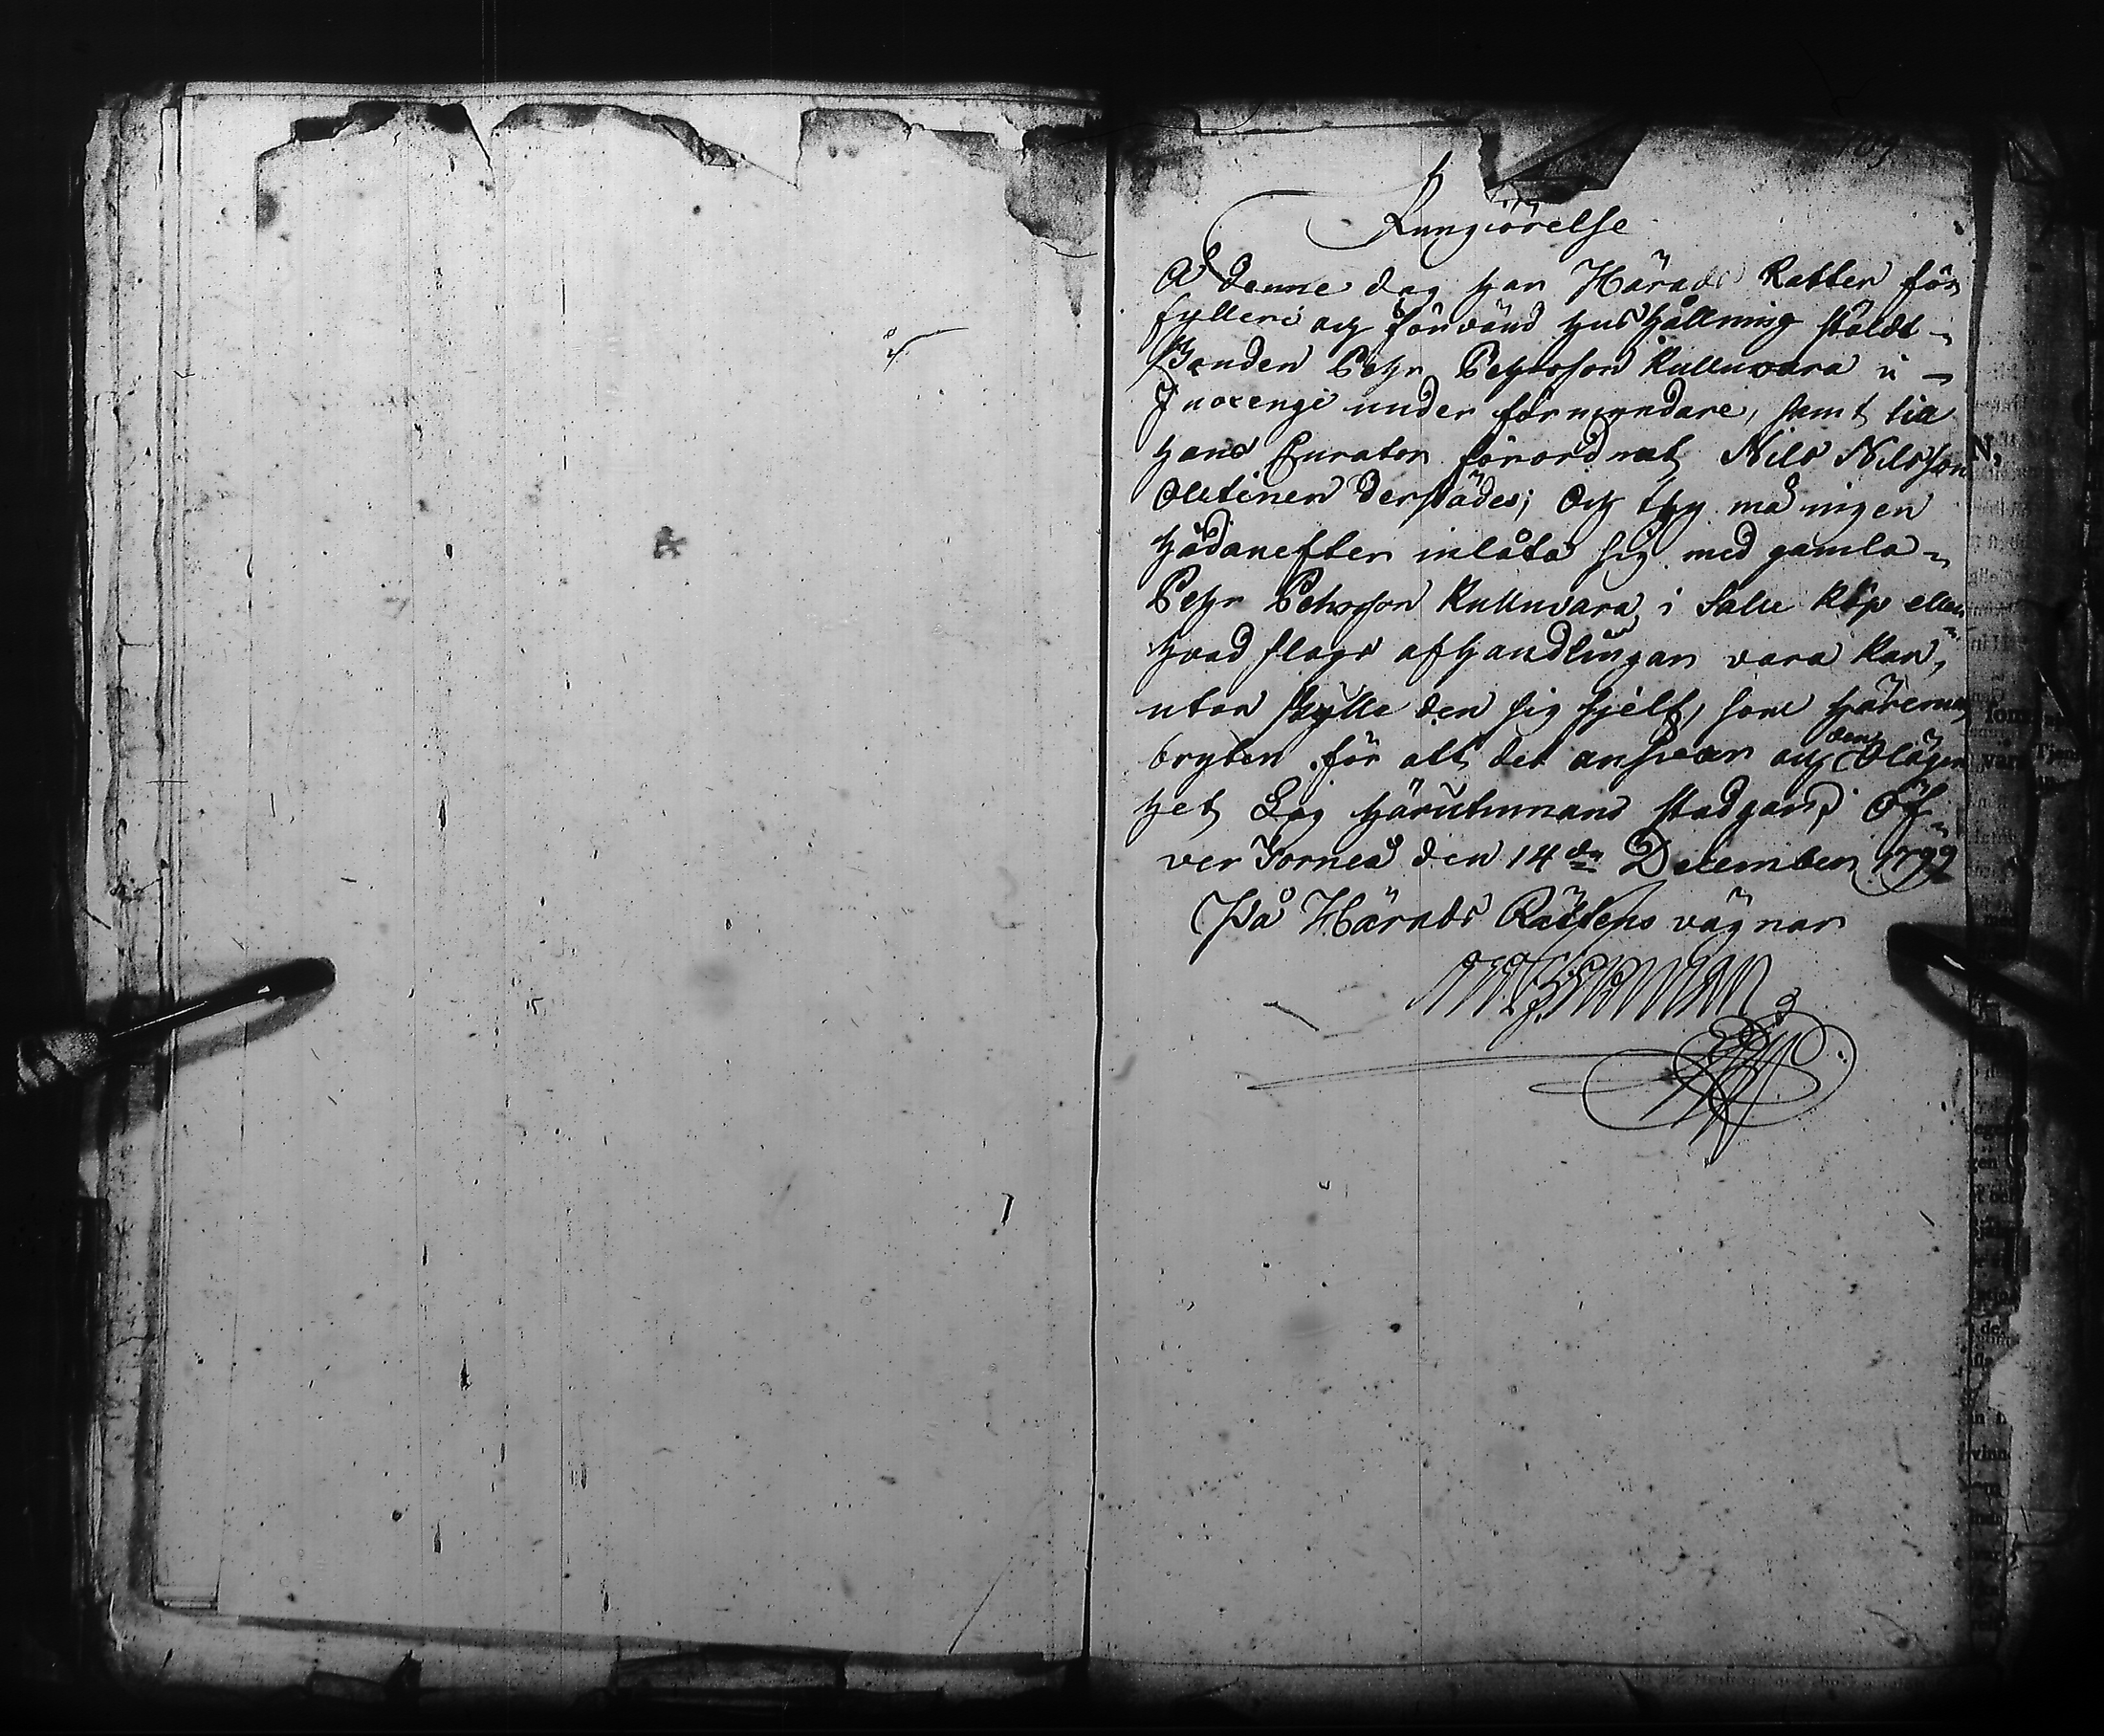 109
Kungiörelse
A denne dag har Härads Rätten för
fylleri och förvänd hushållning stäldt
Bonden Pehr Pehrsson Kulluvara i
Juoxengi under förmyndare, samt till
hans Curator förordnat Nils Nilsson
Olutinen derstädes; Och thy må ingen
hädanefter inlåta sig med gamla
Pehr Pehrsson Kulluvara i salu köp eller
hvad slags afhandlingar vara kan,
utan skylle den sig sjelf, som häremot
bryter för alt det answar och den olägen
het Lag härutinnans stadgar; Öf
ver Torneå den 14de December 1799
På Härads Rättens vägnar